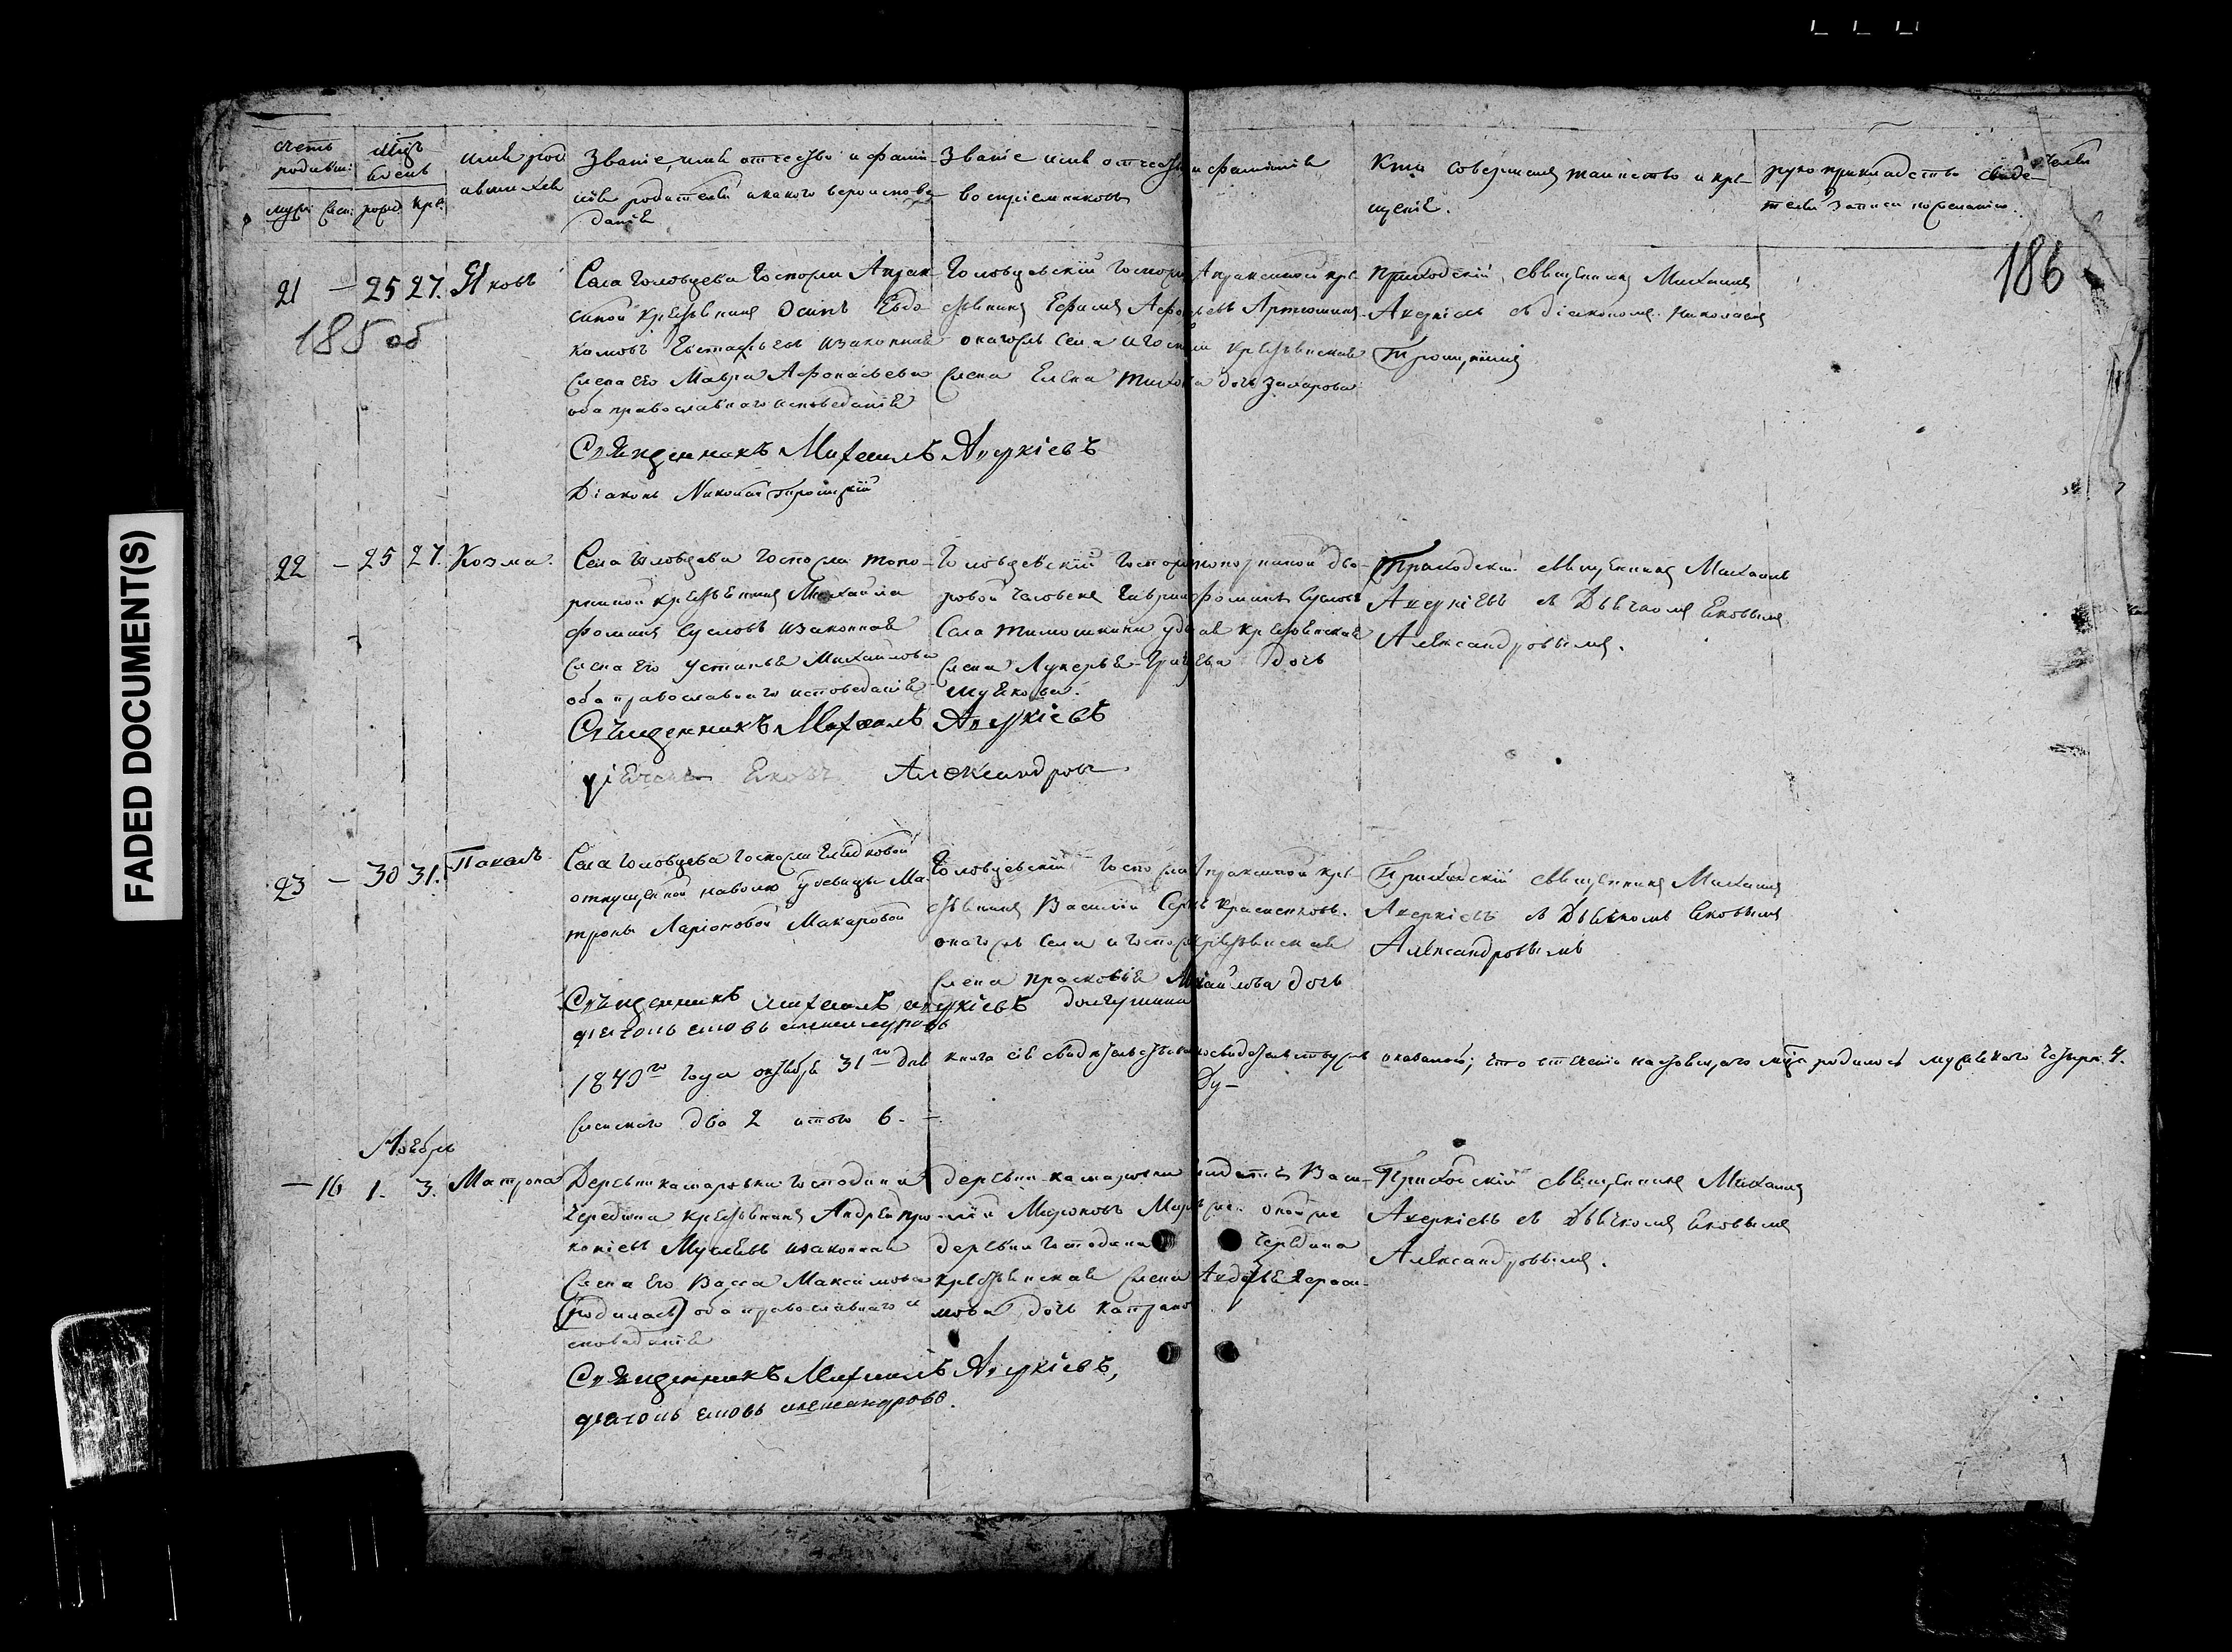 FADED DOCUMENT(S)
счетъ родивш:
мҍсъ и день
имя род
ившихся
муж: жен: рожд кре:
Званіе, имя отчество и фами-
лія родителей и какого вероиспове
данія
Званіе имя отчество и фамилія
воспріемниковъ
Кто совершилъ таинство и кре-
щеніе.
рукоприкладство свиде-
телей записи по желанію.
186
185 об
21 — 25 27. Яковъ
Села Головцева Госпожи Апрак-
синой крестьянинъ Осипъ Евдо-
кимовъ Евстафьевъ и законная
жена его Мавра Афонасьева
оба православнаго исповеданія
Головцевскій Госпожи Апраксиной кре-
стьянинъ Ефимъ
онагожъ села и Госпожи крестьянская
жена Елена дочь Захарова
Приходскій священникъ Михаилъ
Аверкіевъ съ діакономъ Николаемъ
Троицкимъ
Священникъ Михаилъ Аверкіевъ
Діаконъ Николай Троицкій
22 — 25 27. Козма.
Села Головцева Госпожи Топо-
рниной крестьянинъ Михайла
Фоминъ Сусловъ и законная
жена его Устинья Михайлова
оба православнаго исповеданія
Головцевскій Госпожи Топорниной дво-
ровой человекъ Гаврила Фоминъ Сусловъ
Села Тимошкина крестьянская
жена Лукерья дочь
Приходскій священникъ Михаилъ
Аверкіевъ съ Дьячкомъ Яковымъ
Александровымъ.
Священникъ Михаилъ Аверкіевъ
Яковъ Александровъ
23 — 30 31. Павелъ
Села Головцева Госпожи
отпущенной наволю вдовицы Ма-
троны Ларіоновой Макаровой
Головцевскій Госпожи Апраксиной кре-
стьянинъ Василій
онагожъ села и Госпожи крестьянская
жена Прасковья Михайлова дочь
Долгушина
Приходскій священникъ Михаилъ
Аверкіевъ съ Дьячкомъ Яковымъ
Александровымъ
Священникъ Михаилъ Аверкіевъ
дьячокъ Яковъ Александровъ
1840го года октября 31го дня книга сія что въ теченіе настоящаго мҍсъ родилось мужскаго четыре 4.
женскаго два 2 итого 6. —
Ноябрь
— 16 1. 3. Матрона
Деревни Комаровки Господина
Чередина крестьянинъ Андрей Про-
копіевъ и законная
жена его Васса Максимова
(родилась) оба православнаго и
споведанія
деревни Комаровки Васи-
лій Мироновъ
деревни Господина Чередина
крестьянская жена Авдотья Гераси-
мова дочь
Приходскій священникъ Михаилъ
Аверкіевъ съ Дьячкомъ Яковымъ
Александровымъ.
Священникъ Михаилъ Аверкіевъ,
дьячокъ Яковъ Александровъ.